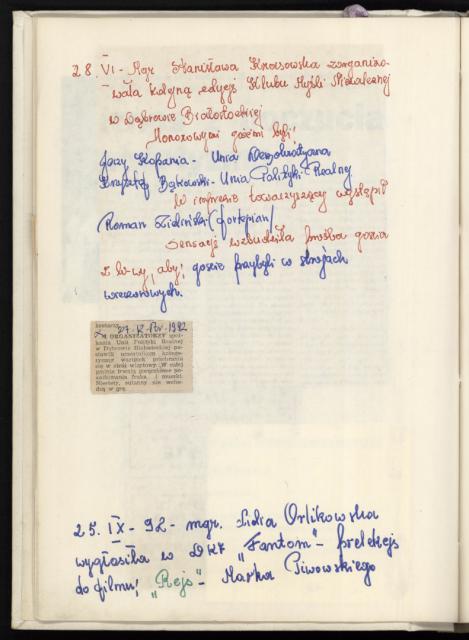 28. VI - Mgr Stanisława Krasowska zorganizo-
wała kolejną edycję Klubu Myśli Niezależnej
w Dąbrowie Białostockiej
Honorowymi gośćmi byli:
Jerzy - Unia Demokratyczna
Krzysztof Bąkowski - Unia Polityki Realnej
W imprezie towarzyszącej wystąpił
Roman Zieliński (fortepian)
Sensację wzbudziła prośba gościa
z W-wy, aby: goście przybyli w strojach
wieczorowych.
27. K. Por. 1992
ORGANIZATORZY spot-
kania Unii Polityki Realnej
w Dąbrowie Białostockiej po-
stawili uczestnikom katego-
ryczny warunek przebrania
się w strój wizytowy. W całej
gminie trwają gorączkowe po-
szukiwania fraka i muszki.
Niestety, sutanny nie wcho-
dzą w grę.
25. IX - 92 - mgr. Lidia Orlikowska
wygłosiła w DKF "Fantom" - prelekcję
do filmu: "Rejs" - Marka Piwowskiego